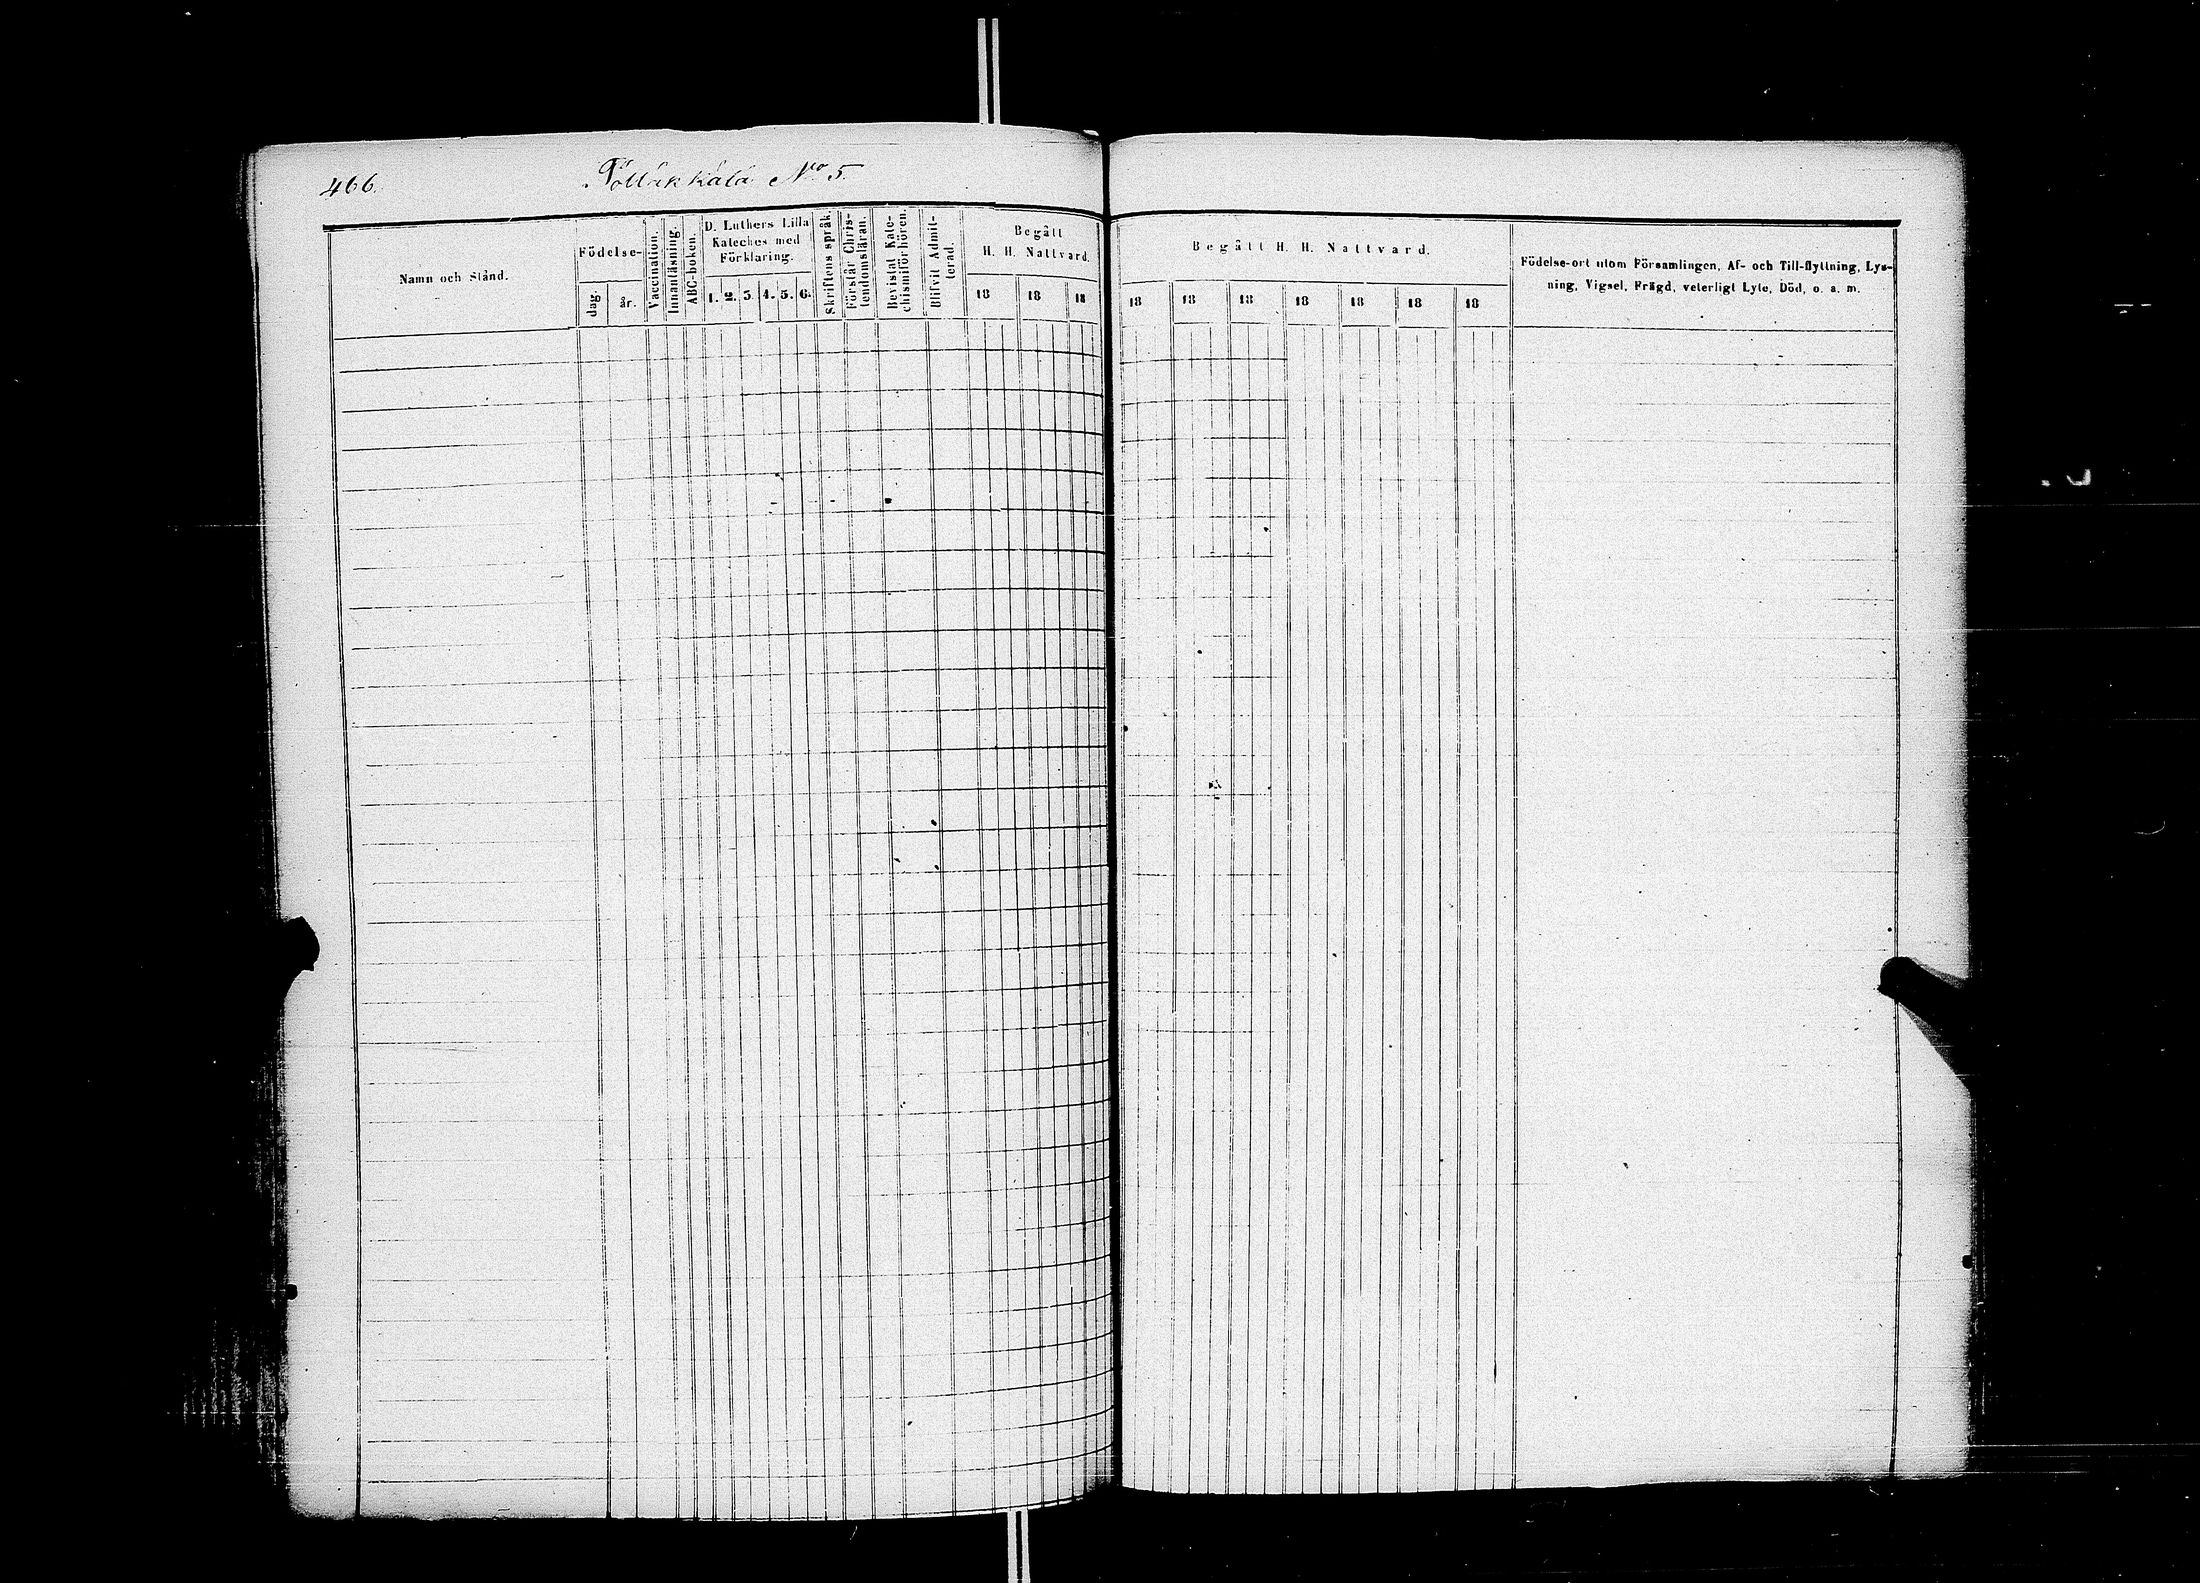 466.
Pölläkkälä No 5.
Namn och Stånd.
Födelse-
dag.
år.
Vaccination.
Innanläsning.
ABC-boken.
D. Luthers Lilla
Kateches med
Förklaring.
1. 2. 3. 4. 5. 6.
Skriftens språk.
Förstår Chris-
tendomsläran.
Bevistat Kate-
chismiförhören.
Blifvit Admit-
terad.
Begått
H. H. Nattvard.
18 18 18
Begått H. H. Nattvard.
18 18 18 18 18 18 18
Födelse-ort utom Församlingen, Af- och Till-flyttning, Lys-
ning, Vigsel, Frägd, veterligt Lyte, Död, o. a. m.